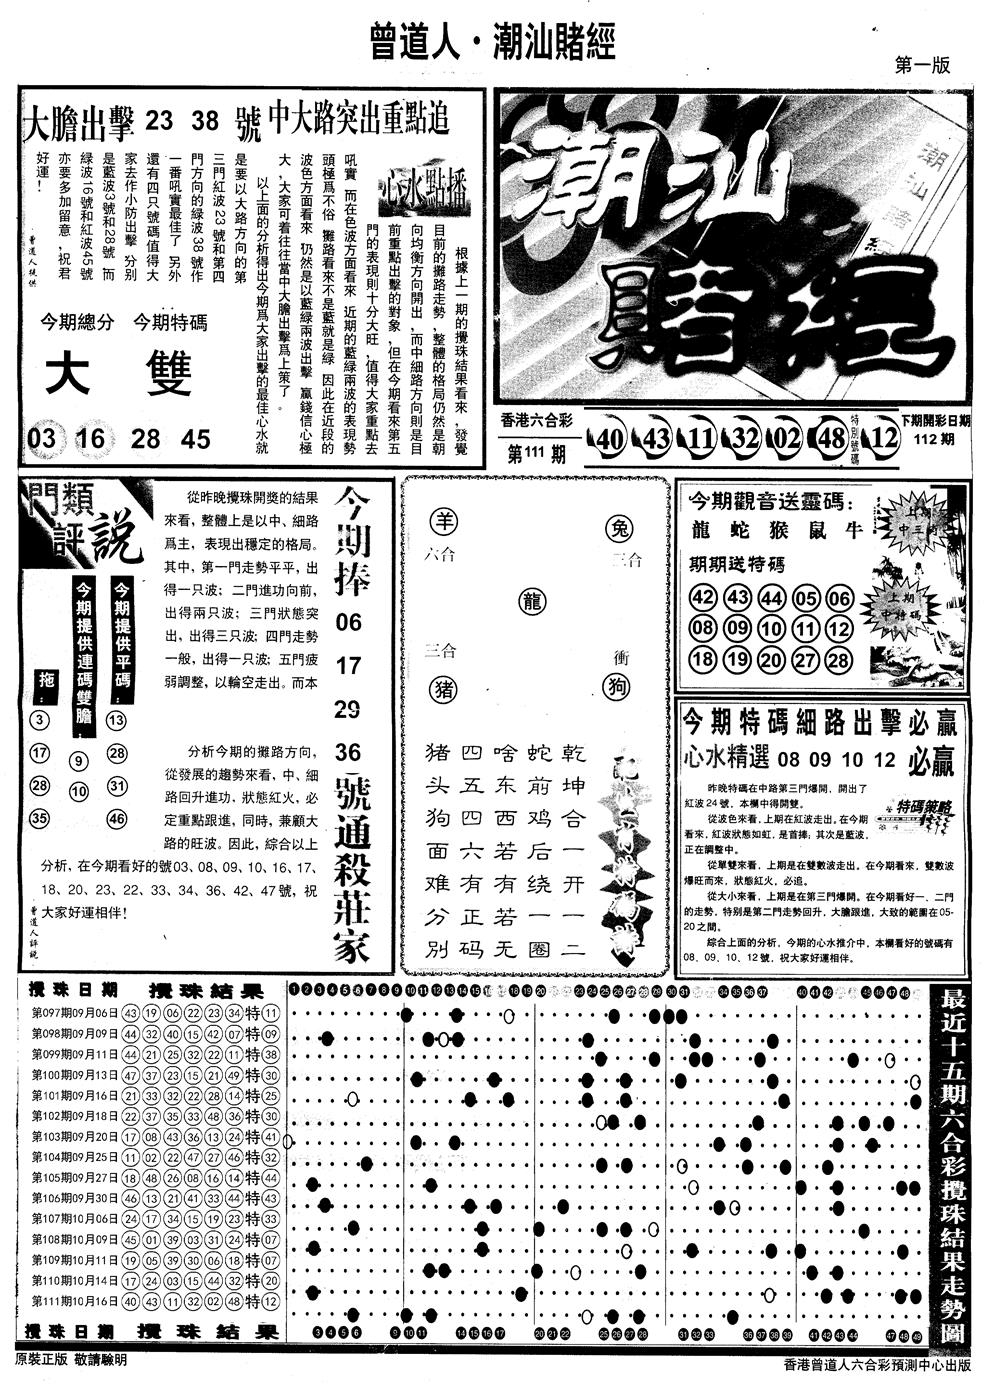 曾道人·潮汕賭經
第一版
大膽出擊 23 38 號中大路突出重點追
心水點播
根據上一期的攪珠結果看來,發覺
目前的攤路走勢,整體的格局仍然是朝
向均衡方向開出,而中細路方向則是目
前重點出擊的對象,但在今期看來第五
門的表現則十分大旺,值得大家重點去
吼實 而在色波方面看來 近期的藍綠兩波的表現勢
頭極爲不俗 攤路看來不是藍就是綠 因此在近段的
波色方面看來 仍然是以藍綠兩波出擊 贏錢信心極
大,大家可着往往當中大膽出擊爲上策了。
以上面的分析得出今期爲大家出擊的最佳心水就
是要以大路方向的第
三門紅波23號和第四
門方向的綠波38號作
一番吼實最佳了 另外
還有四只號碼值得大
家去作小防出擊 分別
是藍波3號和28號 而
綠波16號和紅波45號
亦要多加留意,祝君
好運!
曾道人提供
今期總分 今期特碼
大 雙
03 16 28 45
潮汕賭經
香港六合彩
第111期
40 43 11 32 02 48 特別號碼 12
下期開彩日期
112期
門類評說
從昨晚攪珠開獎的結果
來看,整體上是以中、細路
爲主,表現出穩定的格局。
其中,第一門走勢平平,出
得一只波;二門進功向前,
出得兩只波;三門狀態突
出,出得三只波;四門走勢
一般,出得一只波;五門疲
弱調整,以輪空走出。而本
分析今期的攤路方向,
從發展的趨勢來看,中、細
路回升進功,狀態紅火,必
定重點跟進,同時,兼顧大
路的旺波。因此,綜合以上
分析,在今期看好的號03、08、09、10、16、17、
18、20、23、22、33、34、36、42、47號,祝
大家好運相伴!
曾道人評說
今期提供平碼:
13
28
31
46
今期提供連碼雙膽:
9
10
拖:
3
17
28
35
今期捧
06
17
29
36
號通殺莊家
羊 兔
六合 三合
龍
三合 衝
猪 狗
猪四啥蛇乾
头五东前坤
狗四西鸡合
面六若后一
难有有绕开
分正若一一
別码无圈二
今期觀音送靈碼:
龍 蛇 猴 鼠 牛
期期送特碼
上期中三肖
上期中特碼
42 43 44 05 06
08 09 10 11 12
18 19 20 27 28
今期特碼細路出擊必贏
心水精選 08 09 10 12 必贏
特碼策略
昨晚特碼在中路第三門爆開,開出了
紅波24號,本欄中得開雙。
從波色來看,上期在紅波走出,在今期
看來,紅波狀態如虹,是首捧;其次是藍波,
正在調整中。
從單雙來看,上期是在雙數波走出,在今期看來,雙數波
爆旺而來,狀態紅火,必追。
從大小來看,上期是在第三門爆開。在今期看好一、二門
的走勢,特别是第二門走勢回升,大膽跟進,大致的範圍在05-
20之間。
綜合上面的分析,今期的心水推介中,本欄看好的號碼有
08、09、10、12號,祝大家好運相伴。
攪珠日期 攪珠結果
第097期09月06日 43 19 06 22 23 34 特 11
第098期09月09日 44 32 40 15 42 07 特 09
第099期09月11日 44 21 25 32 22 11 特 38
第100期09月13日 47 37 23 15 21 49 特 30
第101期09月16日 21 33 32 22 28 14 特 25
第102期09月18日 22 37 35 33 48 36 特 30
第103期09月20日 17 08 43 36 13 24 特 41
第104期09月25日 11 02 22 47 27 46 特 32
第105期09月27日 18 48 26 08 16 14 特 44
第106期09月30日 46 13 21 41 33 44 特 43
第107期10月06日 24 17 34 15 19 23 特 33
第108期10月09日 45 01 39 03 31 24 特 07
第109期10月11日 19 05 39 30 06 18 特 07
第110期10月14日 17 24 03 15 44 32 特 20
第111期10月16日 40 43 11 32 02 48 特 12
攪珠日期 攪珠結果
最近十五期六合彩攪珠結果走勢圖
原裝正版 敬請驗明
香港曾道人六合彩預測中心出版